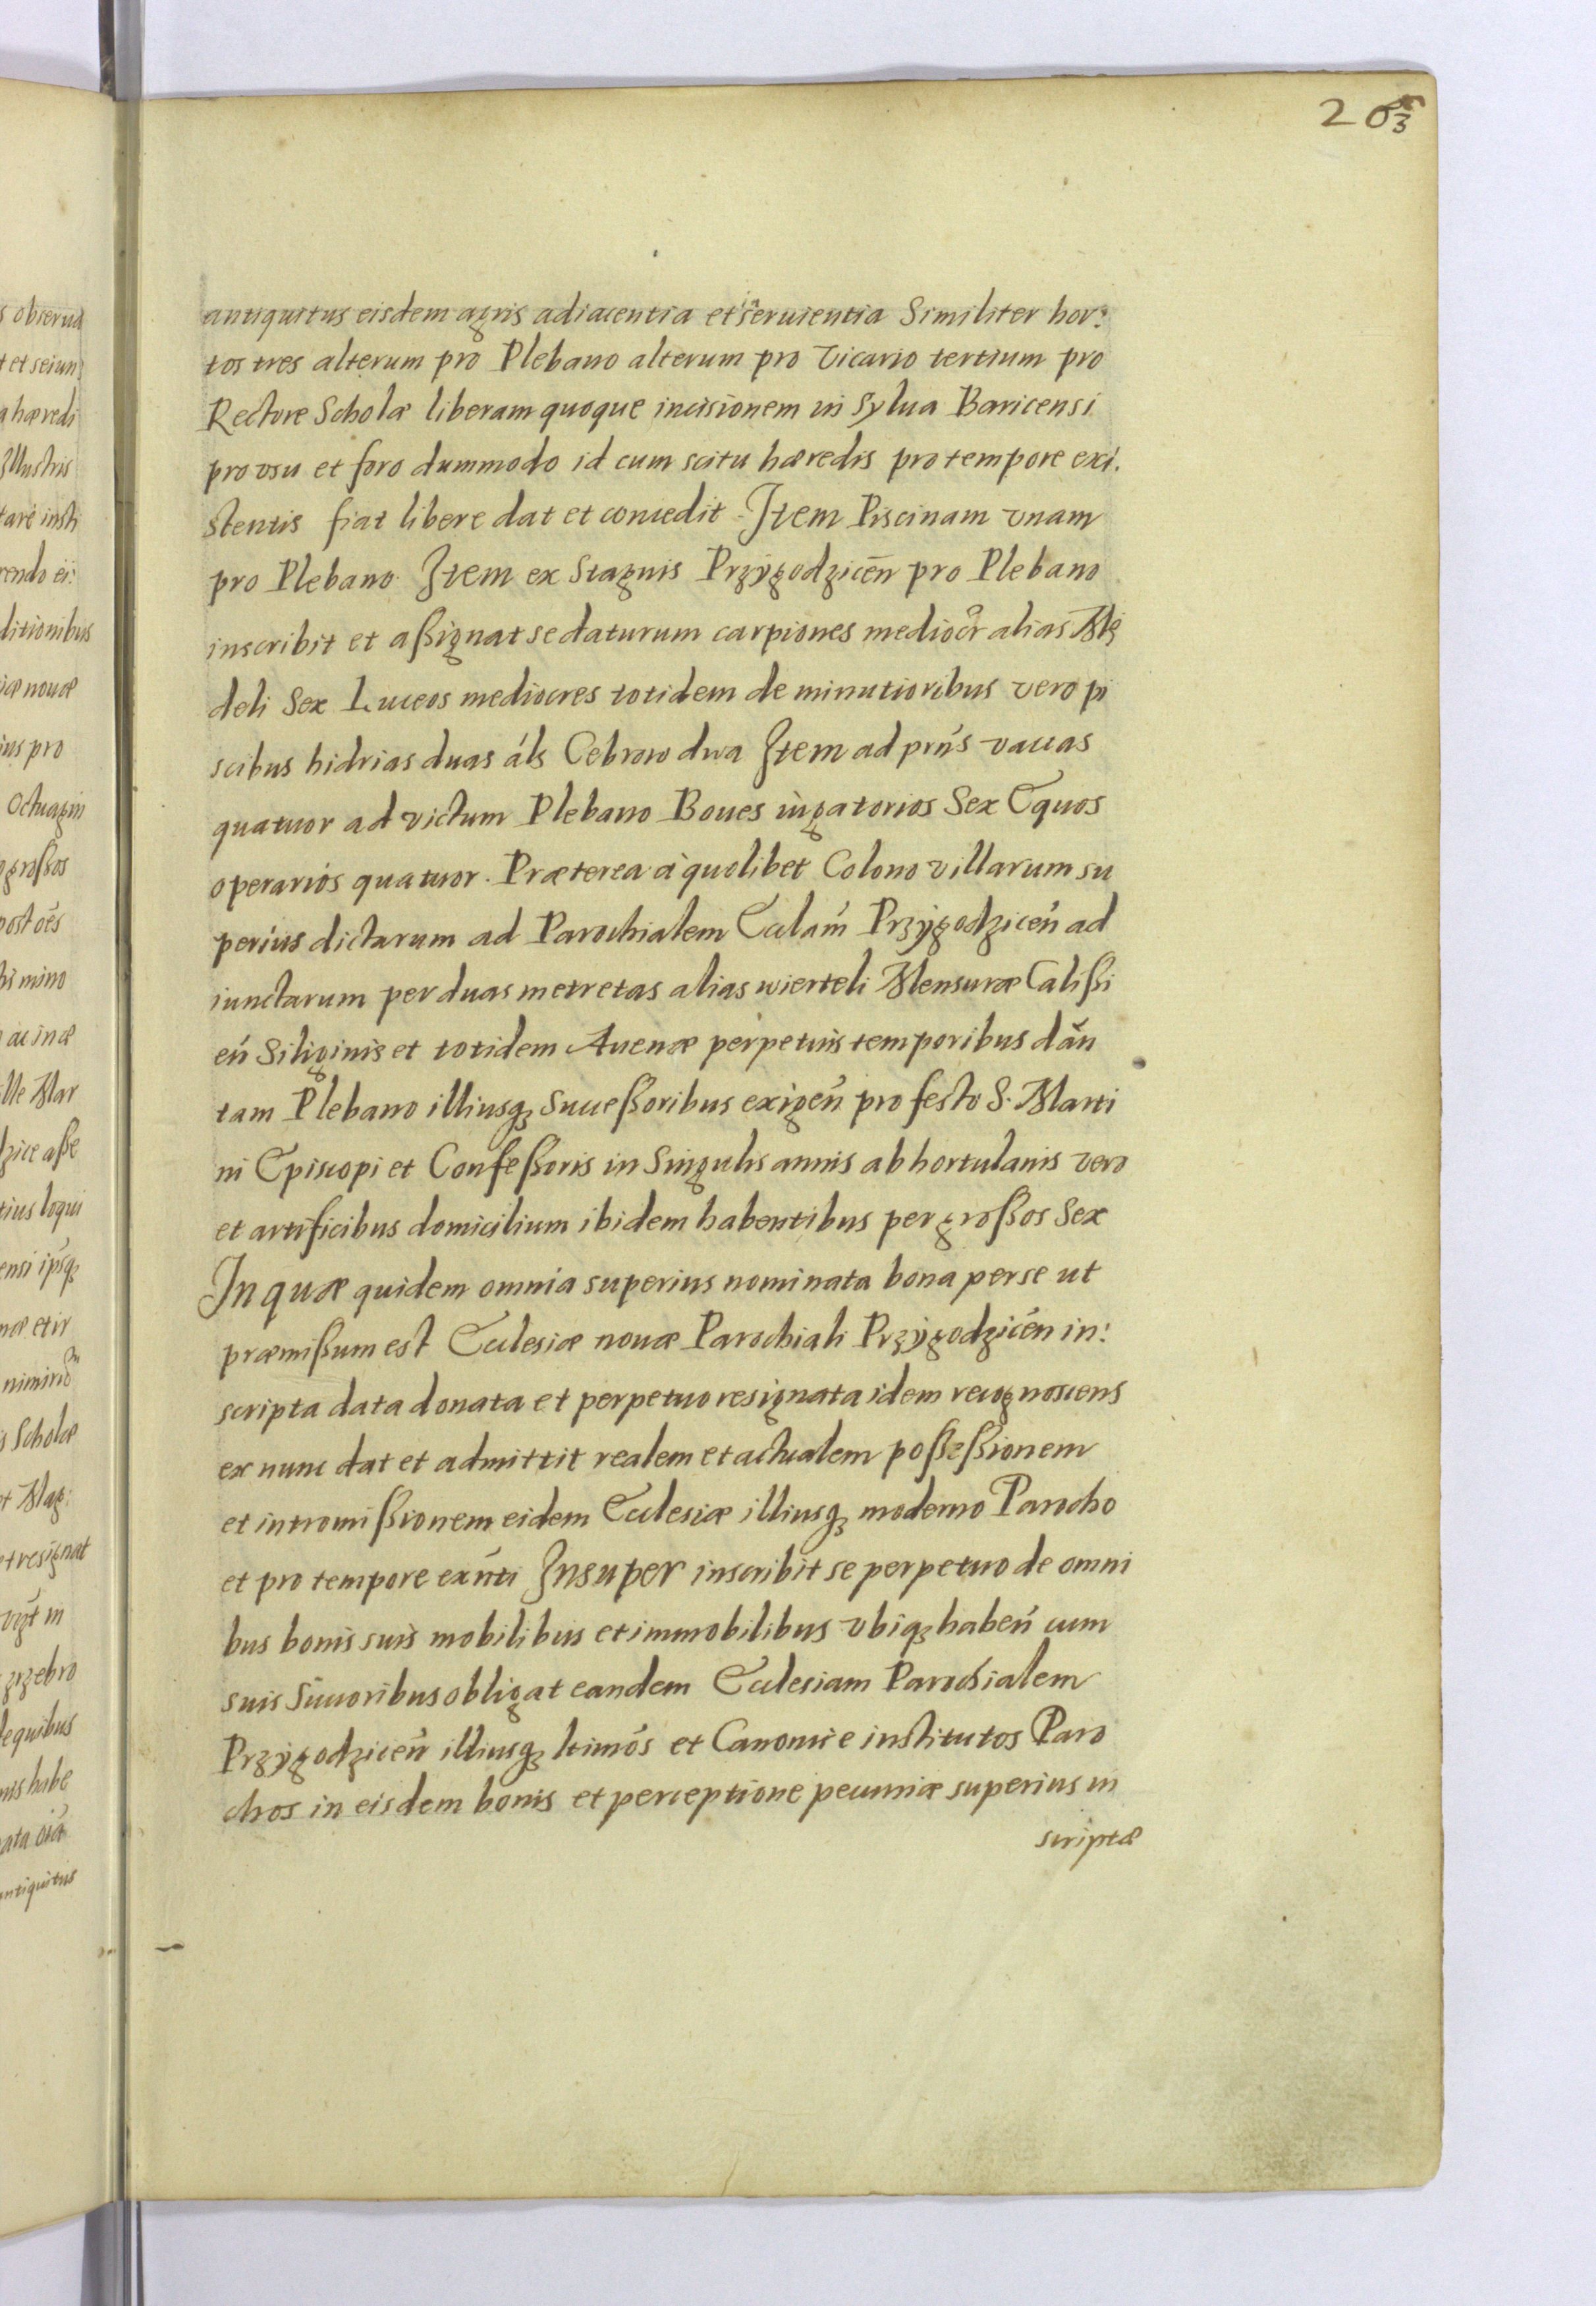 203
antiquitus eisdem agris adiacentia et seruientia Similiter hor:
tos tres alterum pro Plebano alterum pro Vicario tertium pro
Rectore Scholæ liberam quoque incisionem in Sylua Baricensi
pro vsu et foro dummodo id cum scitu hæredis pro tempore exi.
stentis fiat libere dat et concedit Item Piscinam vnam
pro Plebano Item ex Stagnis Przÿgodziceñ pro Plebano
inscribit et aßignat se daturum carpiones mediocr alias Mę
deli Sex Luceos mediocres totidem de minutioribus vero pi
scibus hidrias duas áls Cebrow dwa Item ad pṙns vaccas
quatuor ad victum Plebano Boues iugatorios Sex Equos
operarios quatuor. Præterea à quolibet Colono villarum su
perius dictarum ad Parochialem Ecclam̃ Przÿgodziceñ ad
iunctarum per duas metretas alias wierteli Mensuræ Calißi
eñ Siliginis et totidem Auenæ perpetuis temporibus dañ
tam Plebano illiusqȝ Succeßoribus exigeñ pro festo S. Marti
ni Episcopi et Confeßoris in Singulis annis ab hortulanis vero
et artificibus domicilium ibidem habentibus per großos Sex
In quæ quidem omnia superius nominata bona per se ut
præmißum est Ecclesiæ nouæ Parochiali Przÿgodziceñ in:
scripta data donata et perpetuo resignata idem recognoscens
ex nunc dat et admittit realem et actualem poßeßionem
et intromißionem eidem Ecclesiæ illiusqȝ moderno Parocho
et pro tempore exñti Insuper inscribit se perpetuo de omni
bus bonis suis mobilibus et immobilibus vbiqȝ habeñ cum
suis Succoribus obligat eandem Ecclesiam Parochialem
Przÿgodziceñ illiusqȝ ltimos et Canonice institutos Paro
chos in eisdem bonis et perceptione pecuniæ superius in
scriptæ